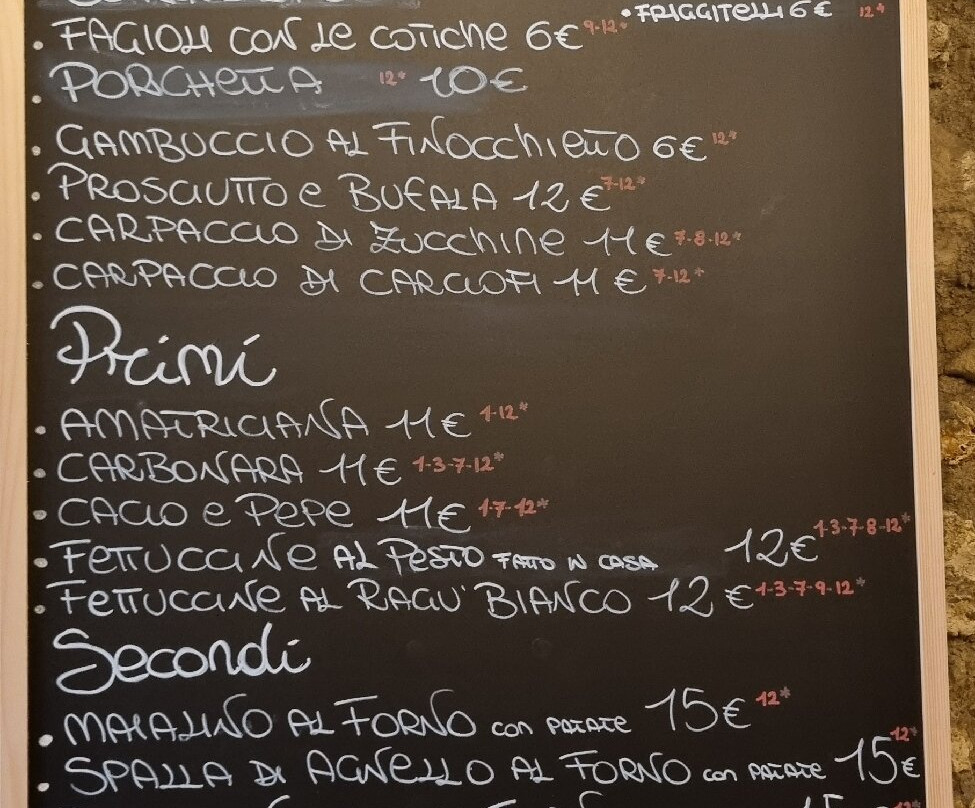 • FRIGGITELLI 6€ 12*
• FAGIOLI CON LE COTICHE 6€ 9-12*
• PORCHETTA 12* 10€
• GAMBUCCIO AL FINOCCHIETTO 6€ 12*
• PROSCIUTTO e BUFALA 12€ 7-12*
• CARPACCIO DI ZUCCHINE 11€ 7-8-12*
• CARPACCIO DI CARCIOFI 11€ 7-12*
Primi
• AMATRICIANA 11€ 1-12*
• CARBONARA 11€ 1-3-7-12*
• CACIO e PEPE 11€ 1-7-12*
• FETTUCCINE AL PESTO FATTO IN CASA 12€ 1-3-7-8-12*
• FETTUCCINE AL RAGU' BIANCO 12€ 1-3-7-9-12*
Secondi
• MAIALINO AL FORNO con PATATE 15€ 12*
• SPALLA DI AGNELLO AL FORNO con PATATE 15€ 12*